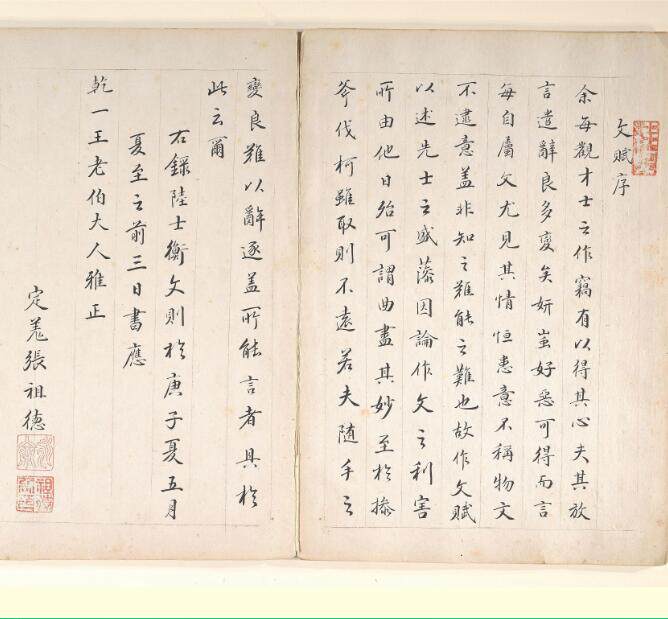 文賦序
余每觀才士之作竊有以得其心夫其放
言遣辭良多變矣妍蚩好惡可得而言
每自屬文尤見其情恒患意不稱物文
不逮意蓋非知之難能之難也故作文賦
以述先士之盛藻因論作文之利害
所由他日殆可謂曲盡其妙至於操
斧伐柯雖取則不遠若夫隨手之
變良難以辭逐蓋所能言者具於
此云爾
右錄陸士衡文則於庚子夏五月
夏至之前三日書應
乾一王老伯大人雅正
定羗張祖德